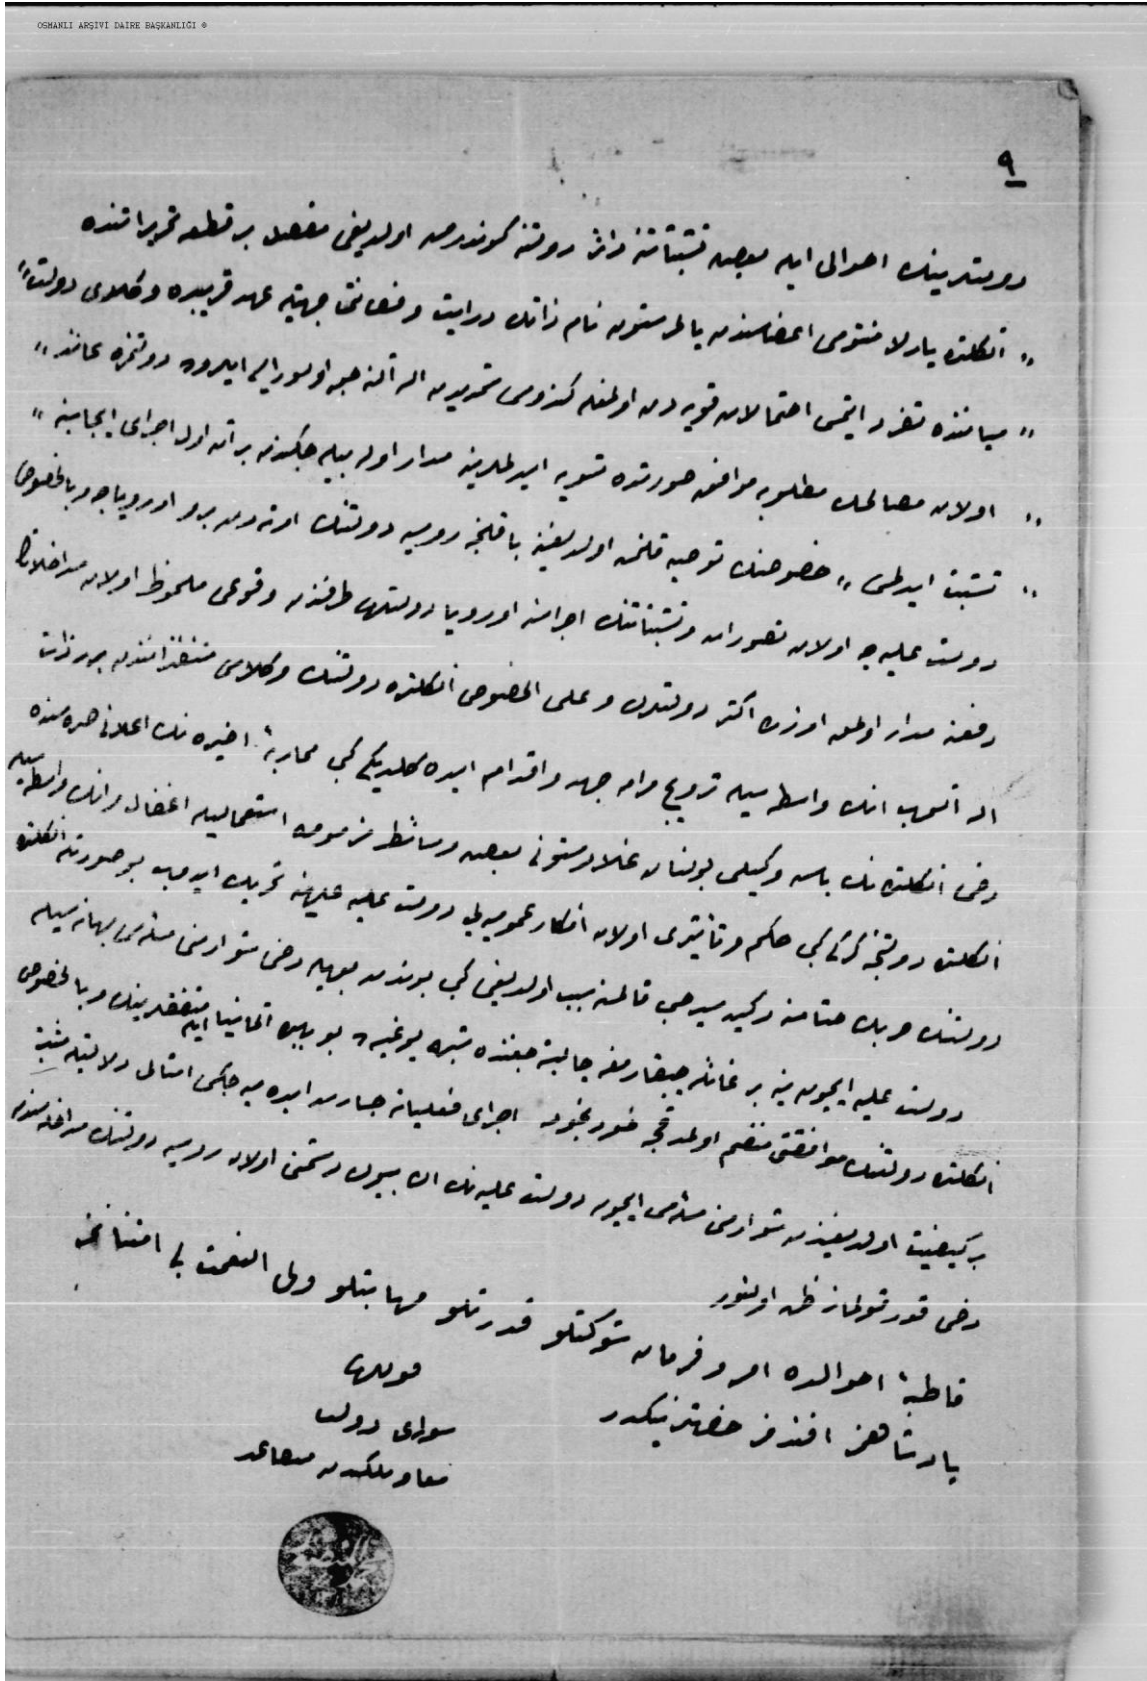 OSMANLI ARŞİVİ DAİRE BAŞKANLIĞI ®
٩
دولتلرينك احوالی ايله بعض تشبثاتنه دائر دولتنه كوندرمش اولديغی مفصل بر قطعه تحريراتنده
" انكلتره پارلامنتوسی اعضاسندن نام ذاتك درايت و جهتيله عهد قريبده وكلای دولت "
" مياننده تفرد ايتمسی احتمالات قويه دن اولمغله كندوسی شمديدن اله آلنه جق اولور ايسه ايلروده دولتمزه عائد "
" اولان مصالحك مطلوبه موافق صورتده تسويه ايدلمسنه مدار اوله بيله جكندن بر آن اول اجرای ايجابنه "
" تشبث ايدلمسی " خصوصنك توصيه قلنمش اولديغنه باقلنجه روسيه دولتنك اوته دن برو اوروپاجه وبالخصوص
دولت عليه جه اولان تصورات و تشبثاتنك اجراسنه اوروپا دولتلری طرفندن وقوعی ملحوظ اولان مداخلاتك
دفعنه مدار اولمق اوزره اكثر دولتلرك و علی الخصوص انكلتره دولتنك وكلاسی متنفذانندن بعض ذوات
اله آلنوب انك واسطه سيله ترويج مرامه جهد و اقدام ايده كلديكی كبی محاربۀ اخيره نك اعلانی صره سنده
دخی انكلتره نك باش وكيلی بولنان غلادستونی بعض وسائط استعماليله اغفال و انك واسطه سيله
انكلتره دولتنجه حكم و تأثيری اولان افكار عموميه يی دولت عليه عليهنه تحريك ايدوب بو صورتله انكلتره
دولتنك حربك ختامنه دكين سيرجی قالمسنه سبب اولديغی كبی بوندن بويله دخی شو ارمنی مسئله سی بهانه سيله
دولت عليه ايچون ينه بر غائله چيقارمغه چاليشه جغنده شبهه يوغيسه ده بو بابده المانيا ايله متفقلرينك و بالخصوص
انكلتره دولتنك موافقتی منضم اولمدقجه خود بخود اجرای فعلياته جسارت ايده ميه جكی امثالی دلالتيله مثبت
بر كيفيت اولديغندن شو ارمنی مسئله سی ايچون دولت عليه نك اك بيوك دشمنی اولان روسيه دولتنك مداخله سندن
دخی قورقولماز ظن اولنور
قاطبۀ احوالده امر و فرمان شوكتلو قدرتلو مهابتلو ولی النعمت بی امتنانمز
پادشاهمز افندمز حضرتلرينكدر
قوللری
شورای دولت
معاونلكندن متقاعد